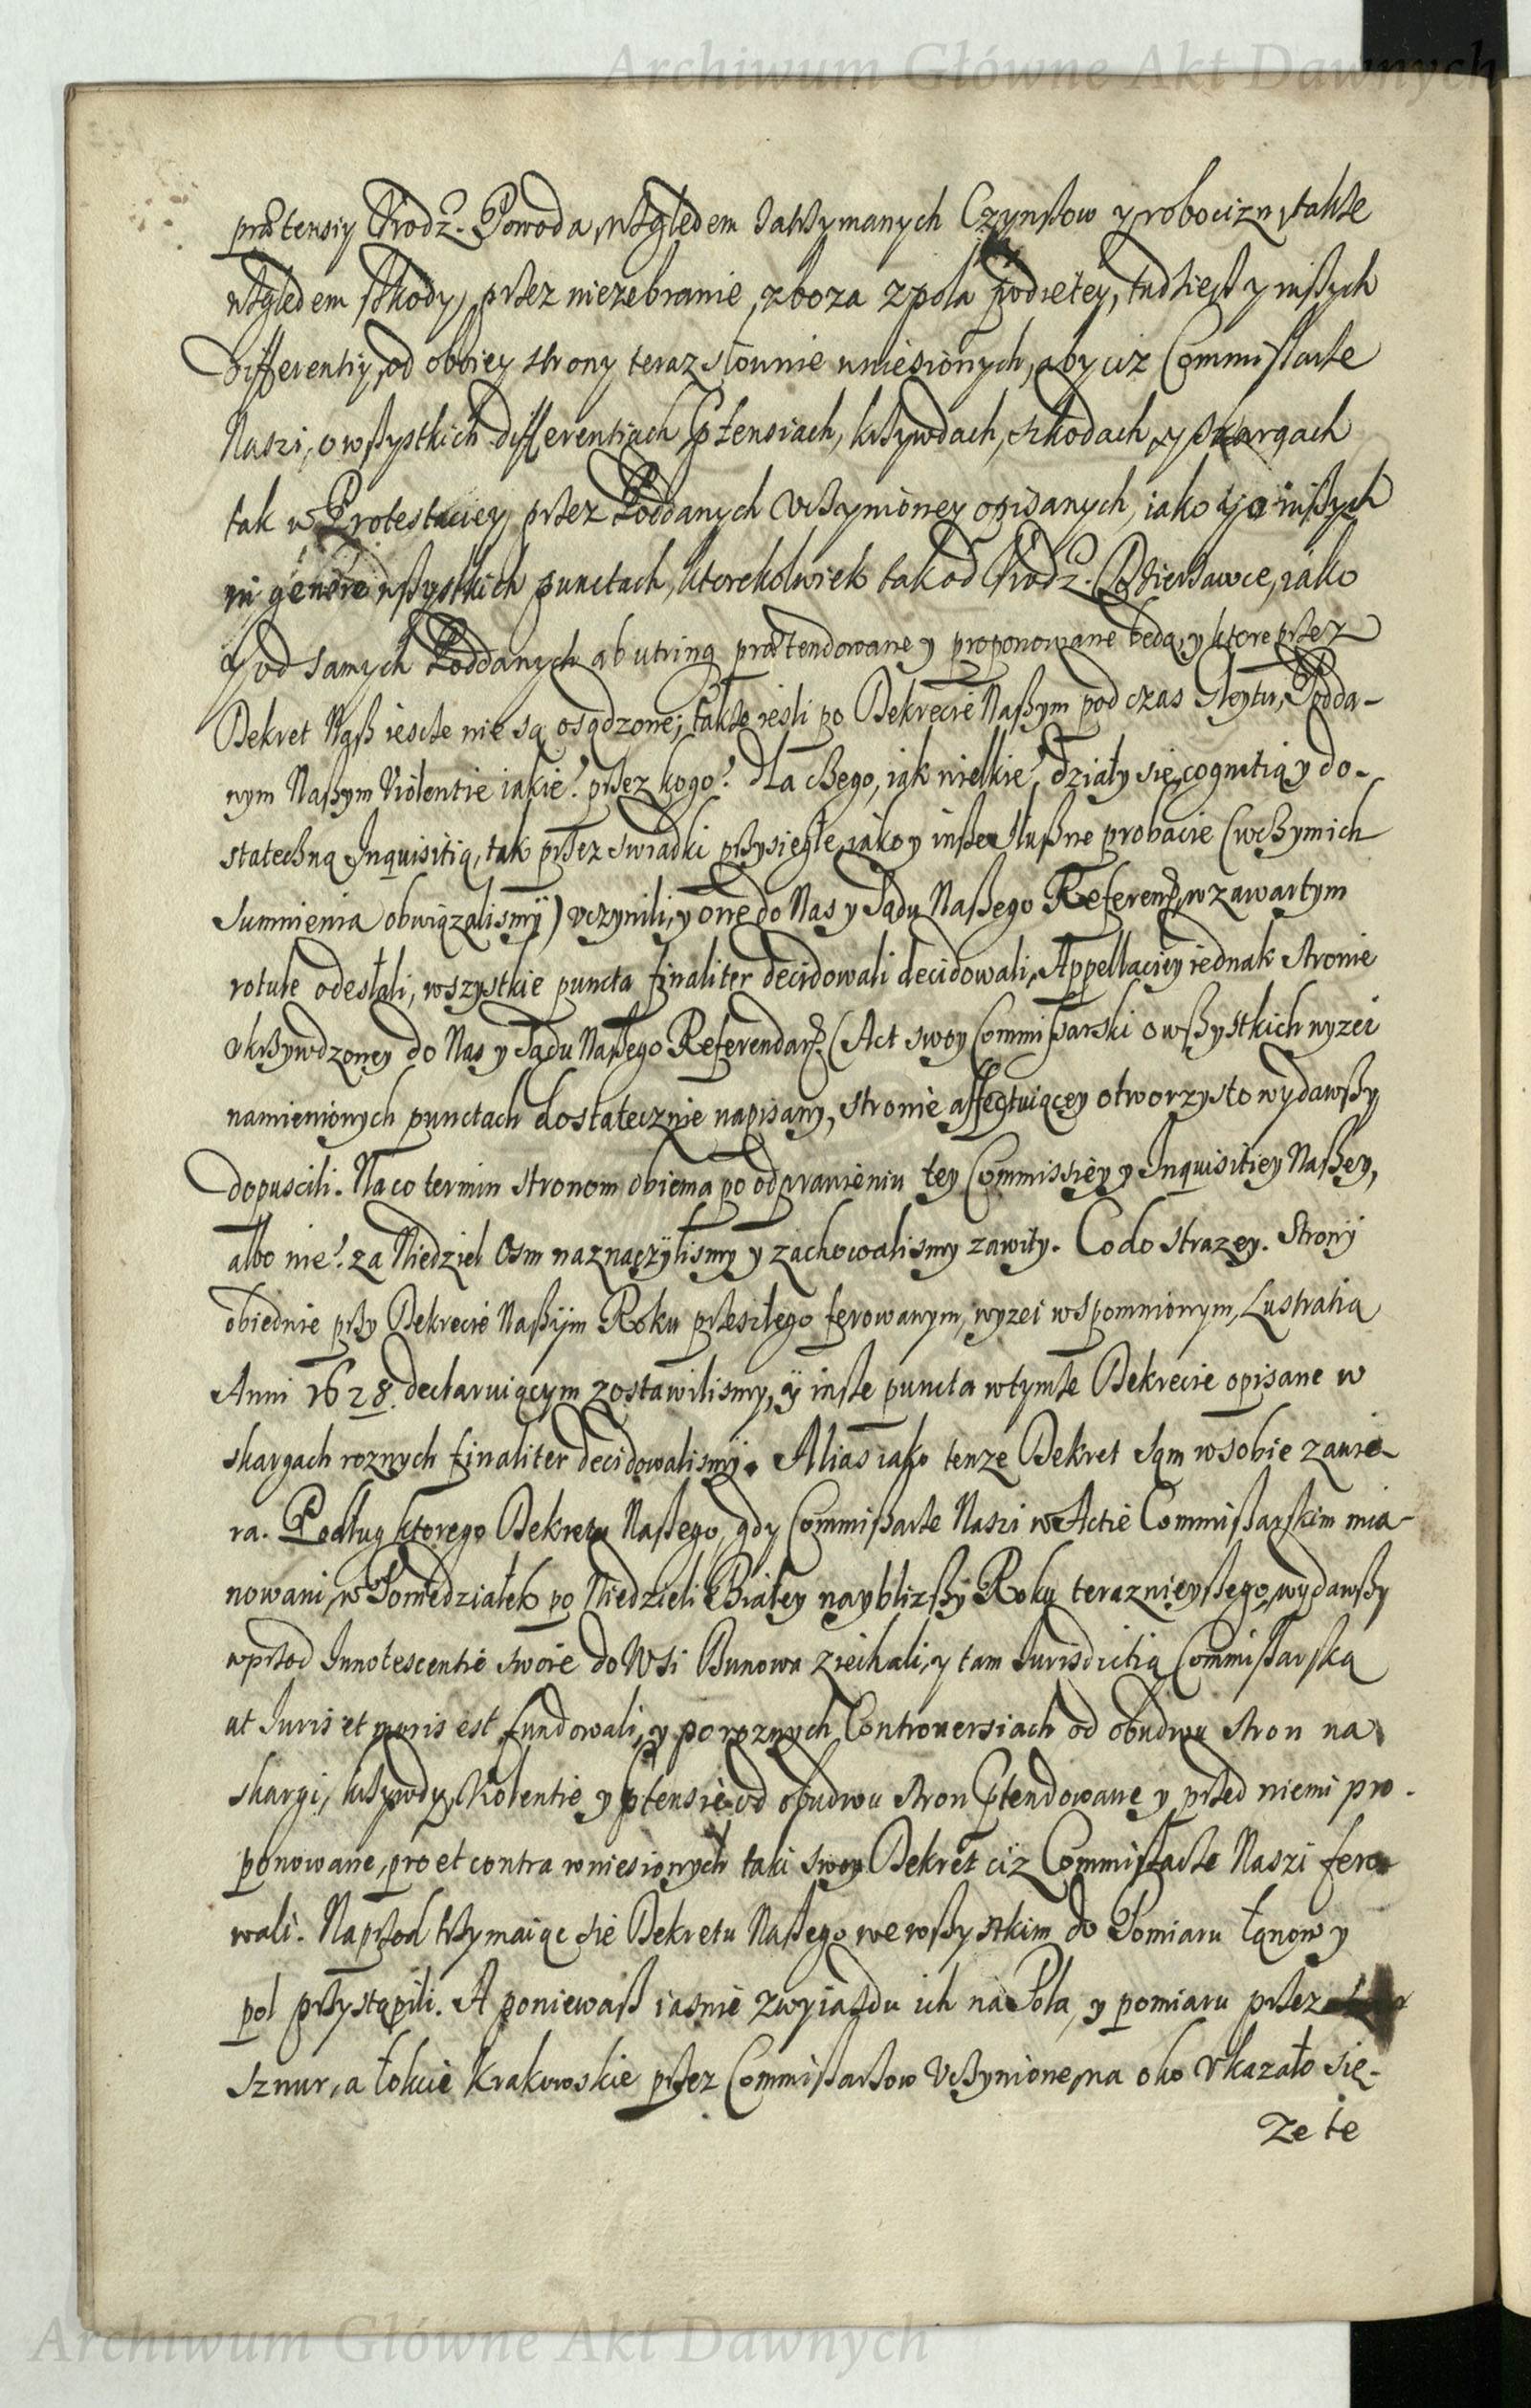 Archiwum Główne Akt Dawnych
prætensiy Urodz. Powoda, względem zatrzymanych Czynszow y robocizn, także
względem szkody, przez niezebranie zboza z pola podiętey, tudziesz y inszych
differentiy, od obbiey strony teraz słownie wniesionych, aby ciz Commissarze
Naszi, o wszystkich differentiach Ptensiach, krzywdach, szkodach, y skargach
tak w Protestaciey przez Poddanych vczynioney opisanych, iako y o inszych
in genere wszystkich punctach, ktorekolwiek tak od Urodz. Dzierzawce, iako
y od samych Poddanych ab utrinq prætendowane y proponowane będą, y ktore przez
Dekret Nasz iescze nie są osądzone; także iesli po Dekrecie Naszym pod czas Gleytu, Podda-
nym Naszym Violentie iakie? przez kogo? dla czego, iak wielkie? działy się, cognitią y do-
stateczną Inquisitią, tak przez swiadki przysięgłe, iako y insze słuszne probacie (w czym ich
sumnienia obwiązalismy) vczynili, y one do Nas y Sądu Naszego Referend. w zawartym
rotule odesłali, wszystkie puncta finaliter decidowali decidowali, Appellaciey iednak stronie
vkrzywdzoney do Nas y Sądu Naszego Referendar. (Act swoy Commissarski o wszystkich wyzei
namienionych punctach dostatecznie napisany, stronie affectuiącey otworzysto wydawszy
dopuscili. Na co termin stronom obiema po odprawieniu tey Commissiey y Inquisitiey Naszey,
albo nie? za Niedziel Osm naznaczylismy y zachowalismy zawity. Co do strazey. Strony
obiednie przy Dekrecie Naszym Roku przeszłego ferowanym, wyzei wspomnionym, Lustratią
Anni 1628. declaruiącym zostawilismy, y insze puncta w tymze Dekrecie opisane w
skargach roznych finaliter decidowalismy. Alias iako tenze Dekret sąm w sobie zawie-
ra. Podług ktorego Dekretu Naszego, gdy Commissarze Naszi w Actie Commissarskim mia-
nowani, w Poniedziałek po Niedzieli Białey nayblizszy Roku teraznieyszego, wydawszy
wprzod Innotescentie swoie do Wsi Bunowa ziechali, y tam Iurisdictią Commissarską
ut Iuris et moris est fundowali, y po roznych Controversiach od obudwu stron na
skargi, krzywdy, Violentie y ptensie od obudwu stron Ptendowane y przed niemi pro-
ponowane, pro et contra wniesionych taki swoy Dekret ciz Commissarze Naszi fero
wali. Naprzod trzymaiąc się Dekretu Naszego we wszystkim do Pomiaru łanow y
pol przystąpili. A poniewasz iasnie z wyiazdu ich na Pola, y pomiaru przez
sznur, a łokcie Krakowskie przez Commissarzow vczynione, na oko vkazało się.
Ze te
Archiwum Główne Akt Dawnych